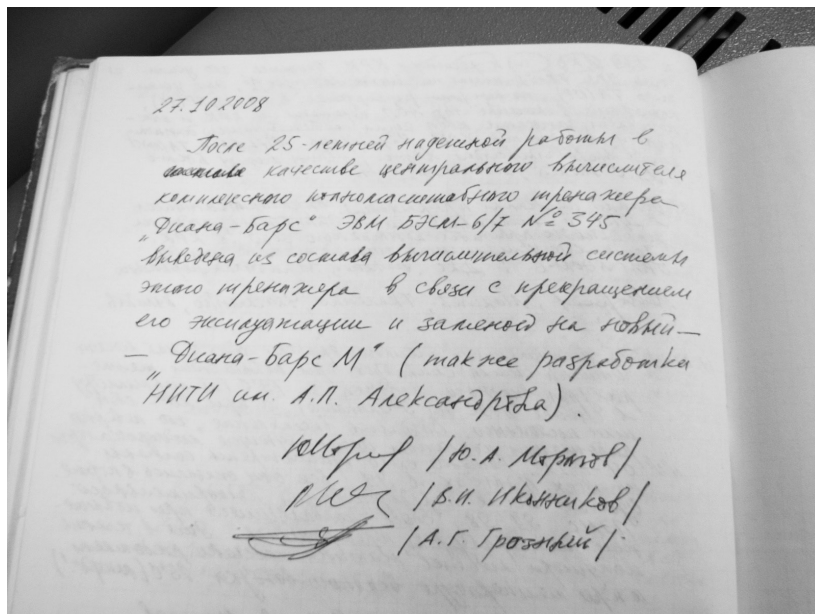 27.10 2008
После 25-летней надежной работы в
качестве центрального вычислителя
комплексного полномасштабного тренажера
„Диана-Барс“ ЭВМ БЭСМ-6/7 № 345
выведена из состава вычислительной системы
этого тренажера в связи с прекращением
его эксплуатации и заменой на новый —
— „Диана-Барс М“ (также разработка
НИТИ им. А.П. Александрова).
/Ю.А. Морозов/
/В.И. Иконников/
/А.Г. Грозный/